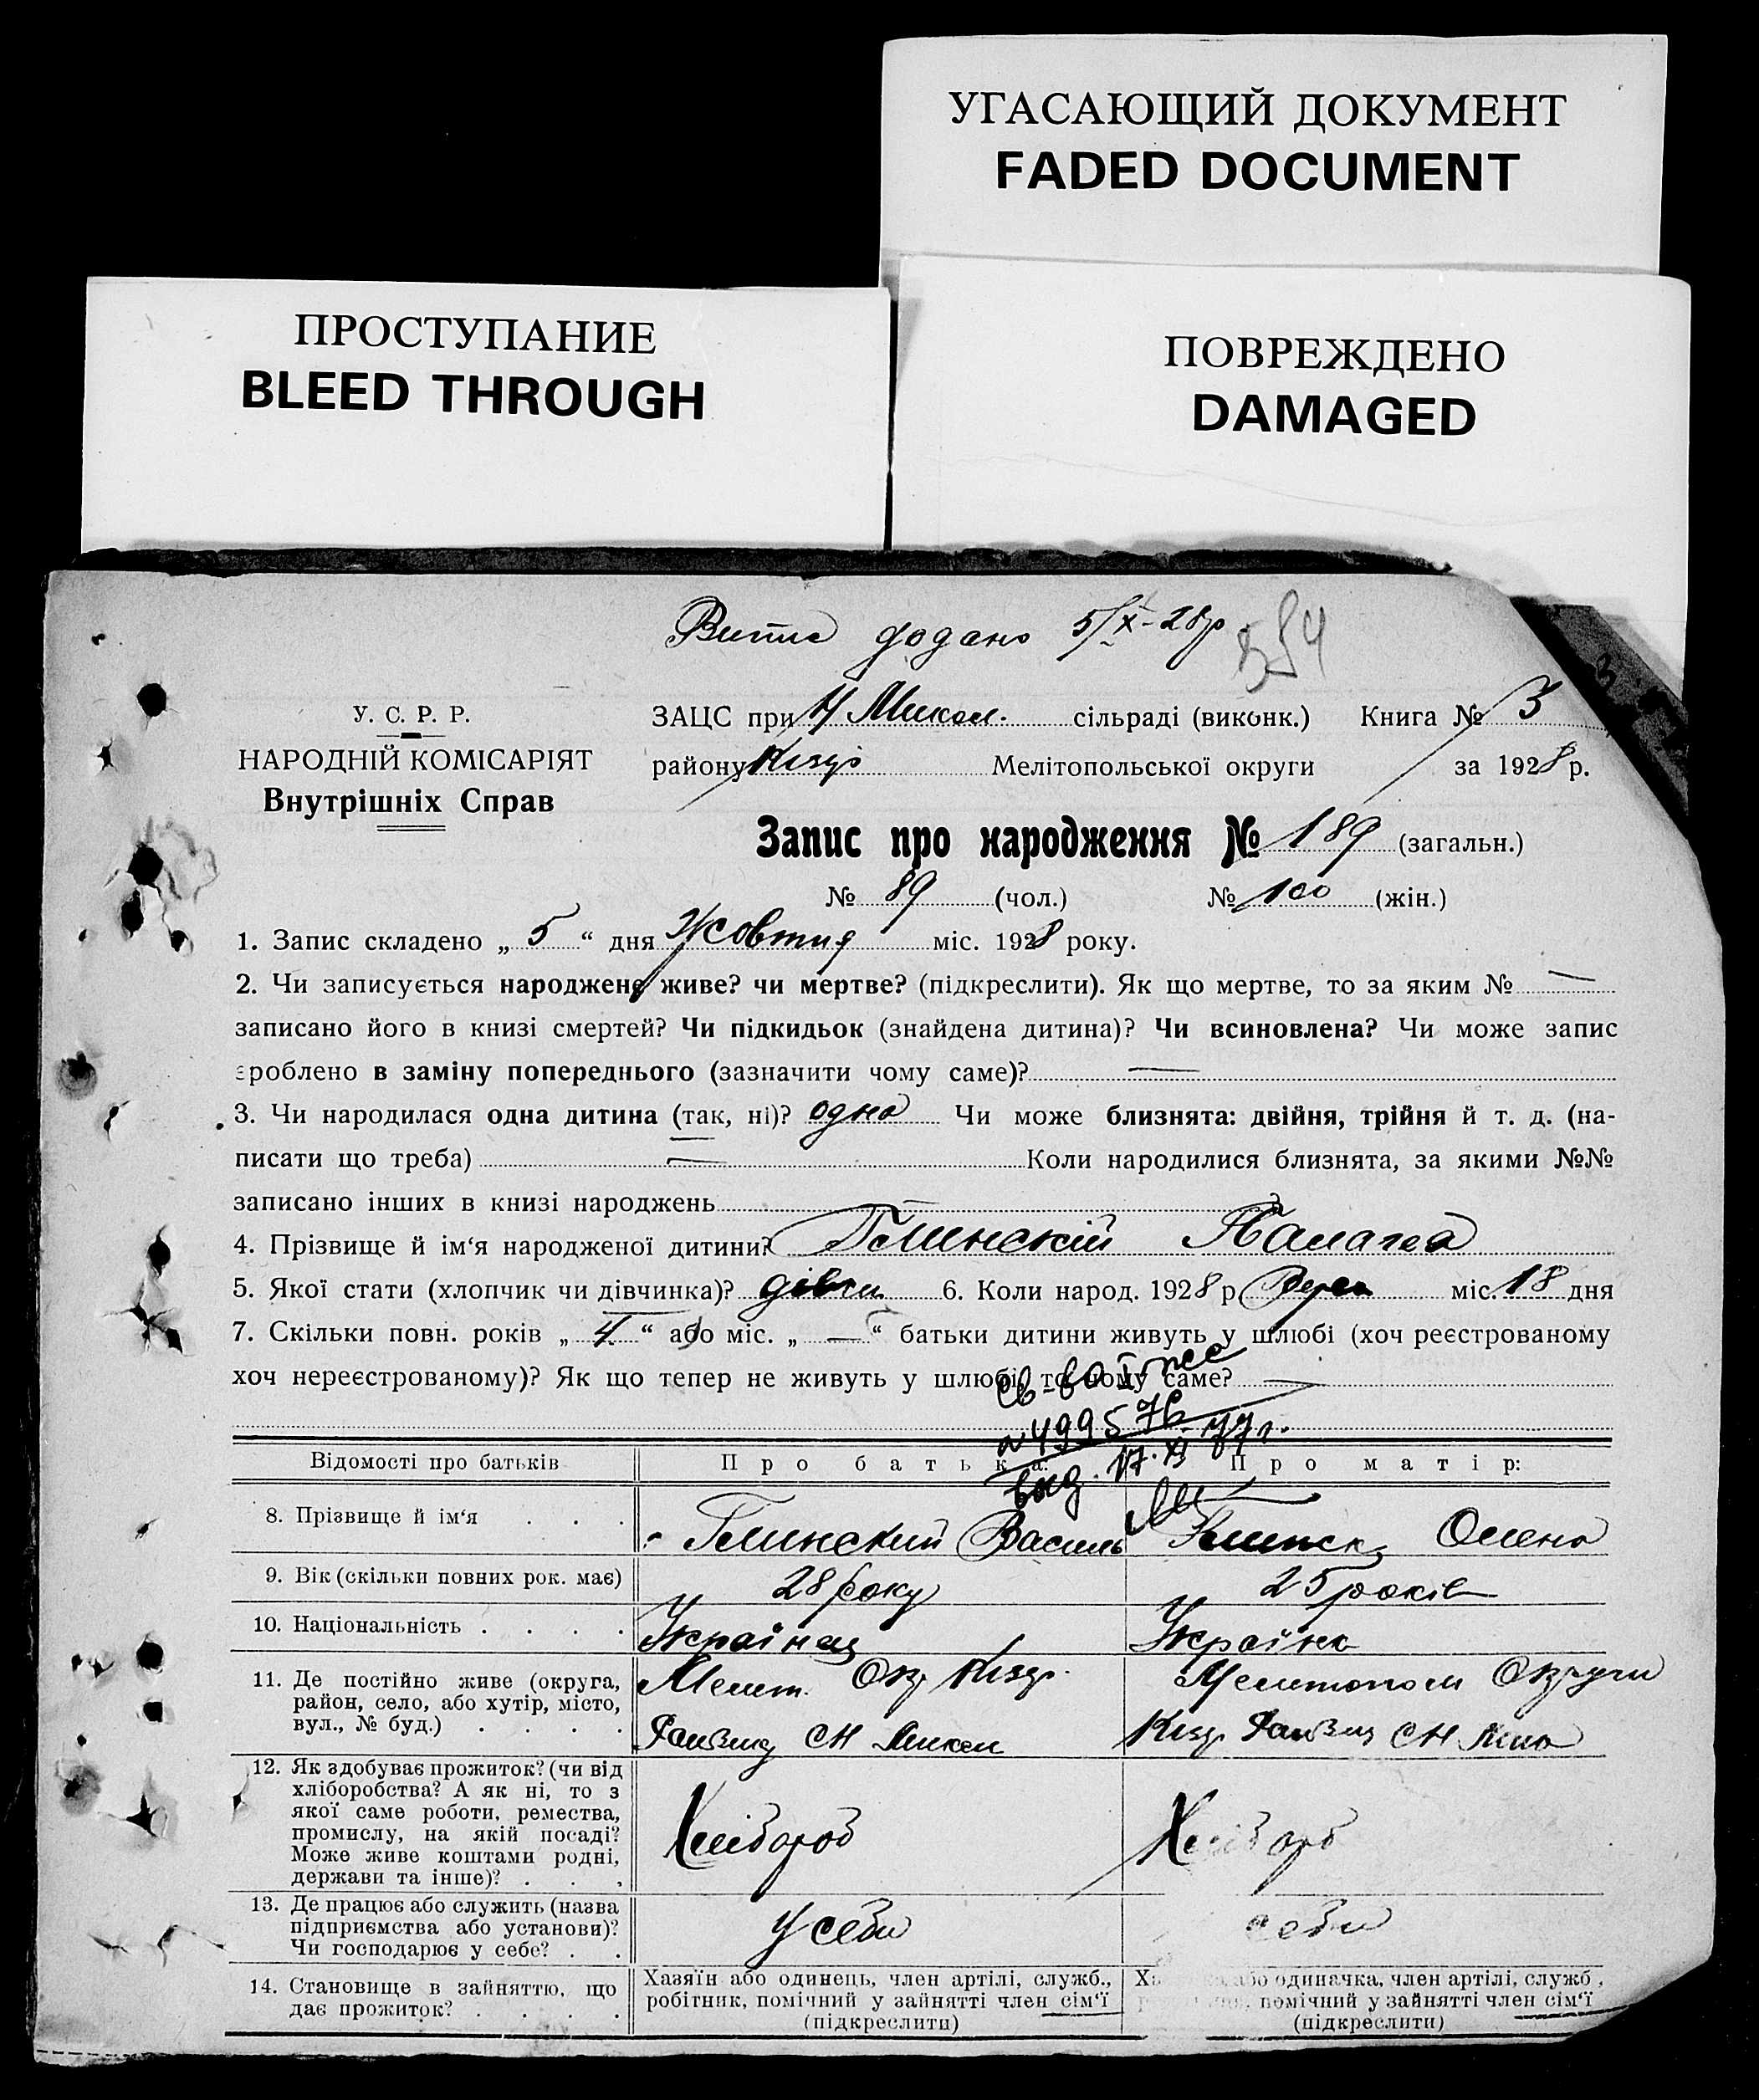 УГАСАЮЩИЙ ДОКУМЕНТ
FADED DOCUMENT
ПРОСТУПАНИЕ
BLEED THROUGH
ПОВРЕЖДЕНО
DAMAGED
Витяг додано 5/X-28р
У. С. Р. Р.
НАРОДНІЙ КОМІСАРІЯТ
Внутрішніх Справ
ЗАЦС при Н Микол. сільраді (виконк.) Книга № 3
району Мелітопольської округи за 1928 р.
Запис про народження № 189 (загальн.)
№ 89 (чол.) № 100 (жін.)
1. Запис складено „ 5 “ дня Жовтня міс. 1928 року.
2. Чи записується народжене живе? чи мертве? (підкреслити). Як що мертве, то за яким № —
записано його в книзі смертей? Чи підкидьок (знайдена дитина)? Чи всиновлена? Чи може запис
зроблено в заміну попереднього (зазначити чому саме)? —
3. Чи народилася одна дитина (так, ні)? одна Чи може близнята: двійня, трійня й т. д. (на-
писати що треба) — Коли народилися близнята, за якими №№
записано інших в книзі народжень
4. Прізвище й ім‘я народженої дитини? Глинский Палагея
5. Якої стати (хлопчик чи дівчинка)? дівчи 6. Коли народ. 1928 р. Верес міс. 18 дня
7. Скільки повн. років „ 4 “ або міс. „ — “ батьки дитини живуть у шлюбі (хоч реєстрованому
хоч нереєстрованому)? Як що тепер не живуть у шлюбі, то чому саме? —
499576
выд. 17.XI-77г.
Відомості про батьків Про батька: Про матір:
8. Прізвище й ім‘я . . . Глинский Василь Глинск Олена
9. Вік (скільки повних рок. має) 28 року 25 років
10. Національність . . . . Українец Українка
11. Де постійно живе (округа,
район, село, або хутір, місто,
вул., № буд.) . . . .
Мелит. Окр
Мелитополи Округи
12. Як здобуває прожиток? (чи від
хліборобства? А як ні, то з
якої саме роботи, ремества,
промислу, на якій посаді?
Може живе коштами родні,
держави та інше)? . . .
Хлібороб Хлібороб
13. Де працює або служить (назва
підприємства або установи)?
Чи господарює у себе? . .
У себи себи
14. Становище в зайняттю, що
дає прожиток? . . . .
Хазяїн або одинець, член артілі, служб.,
робітник, помічний у зайнятті член сім‘ї
(підкреслити)
або одиначка, член артілі, служб.,
помічний у зайнятті член сім‘ї
(підкреслити)